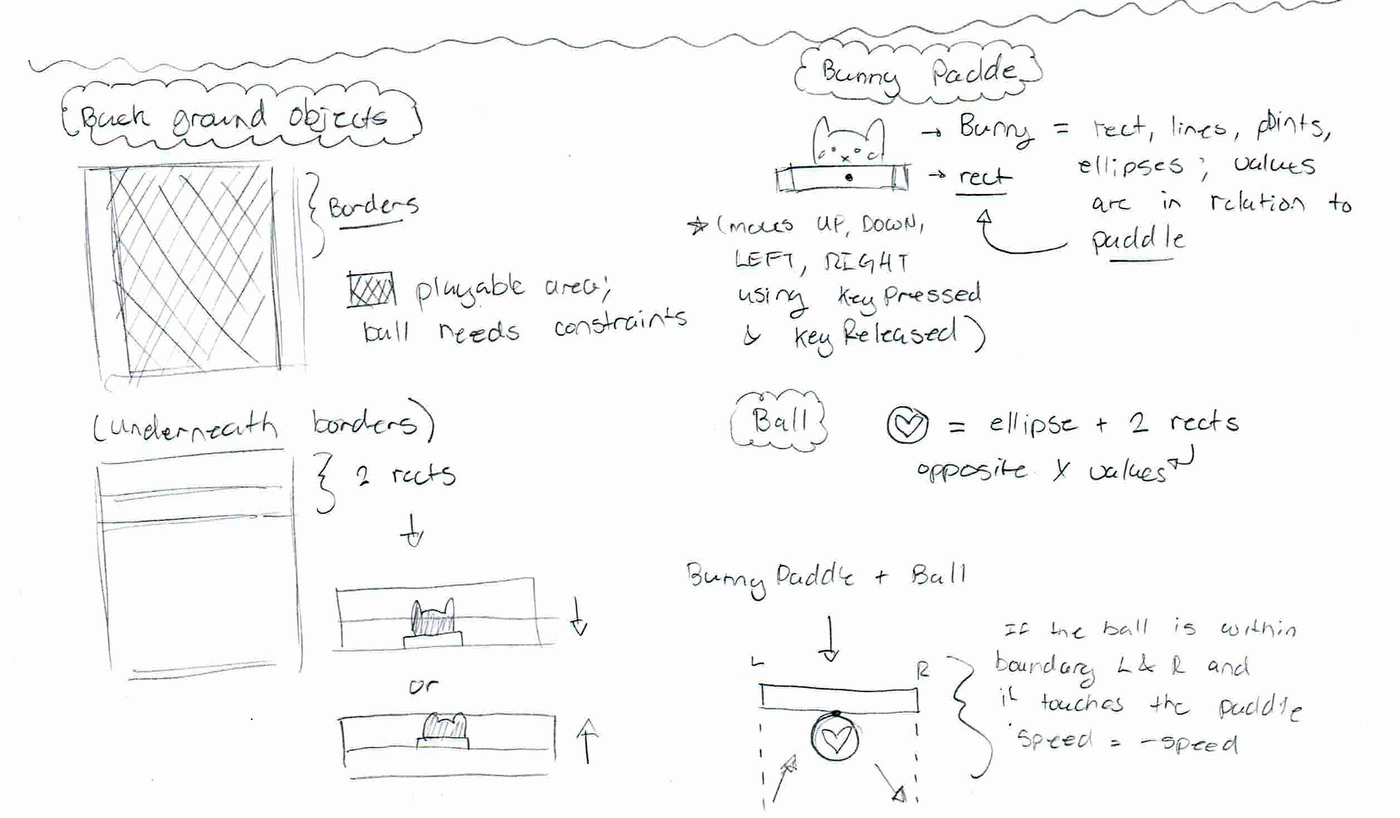 Back ground objects
Borders
playable area;
ball needs constraints
(underneath borders)
2 rects
or
Bunny Paddle
→ Bunny = rect, lines, points,
ellipses; values
are in relation to
paddle
→ rect
☆ (moves UP, DOWN,
LEFT, RIGHT
using keyPressed
& keyReleased)
Ball
= ellipse + 2 rects
opposite X values
Bunny Paddle + Ball
L
R
If the ball is within
boundary L & R and
it touches the paddle
speed = -speed